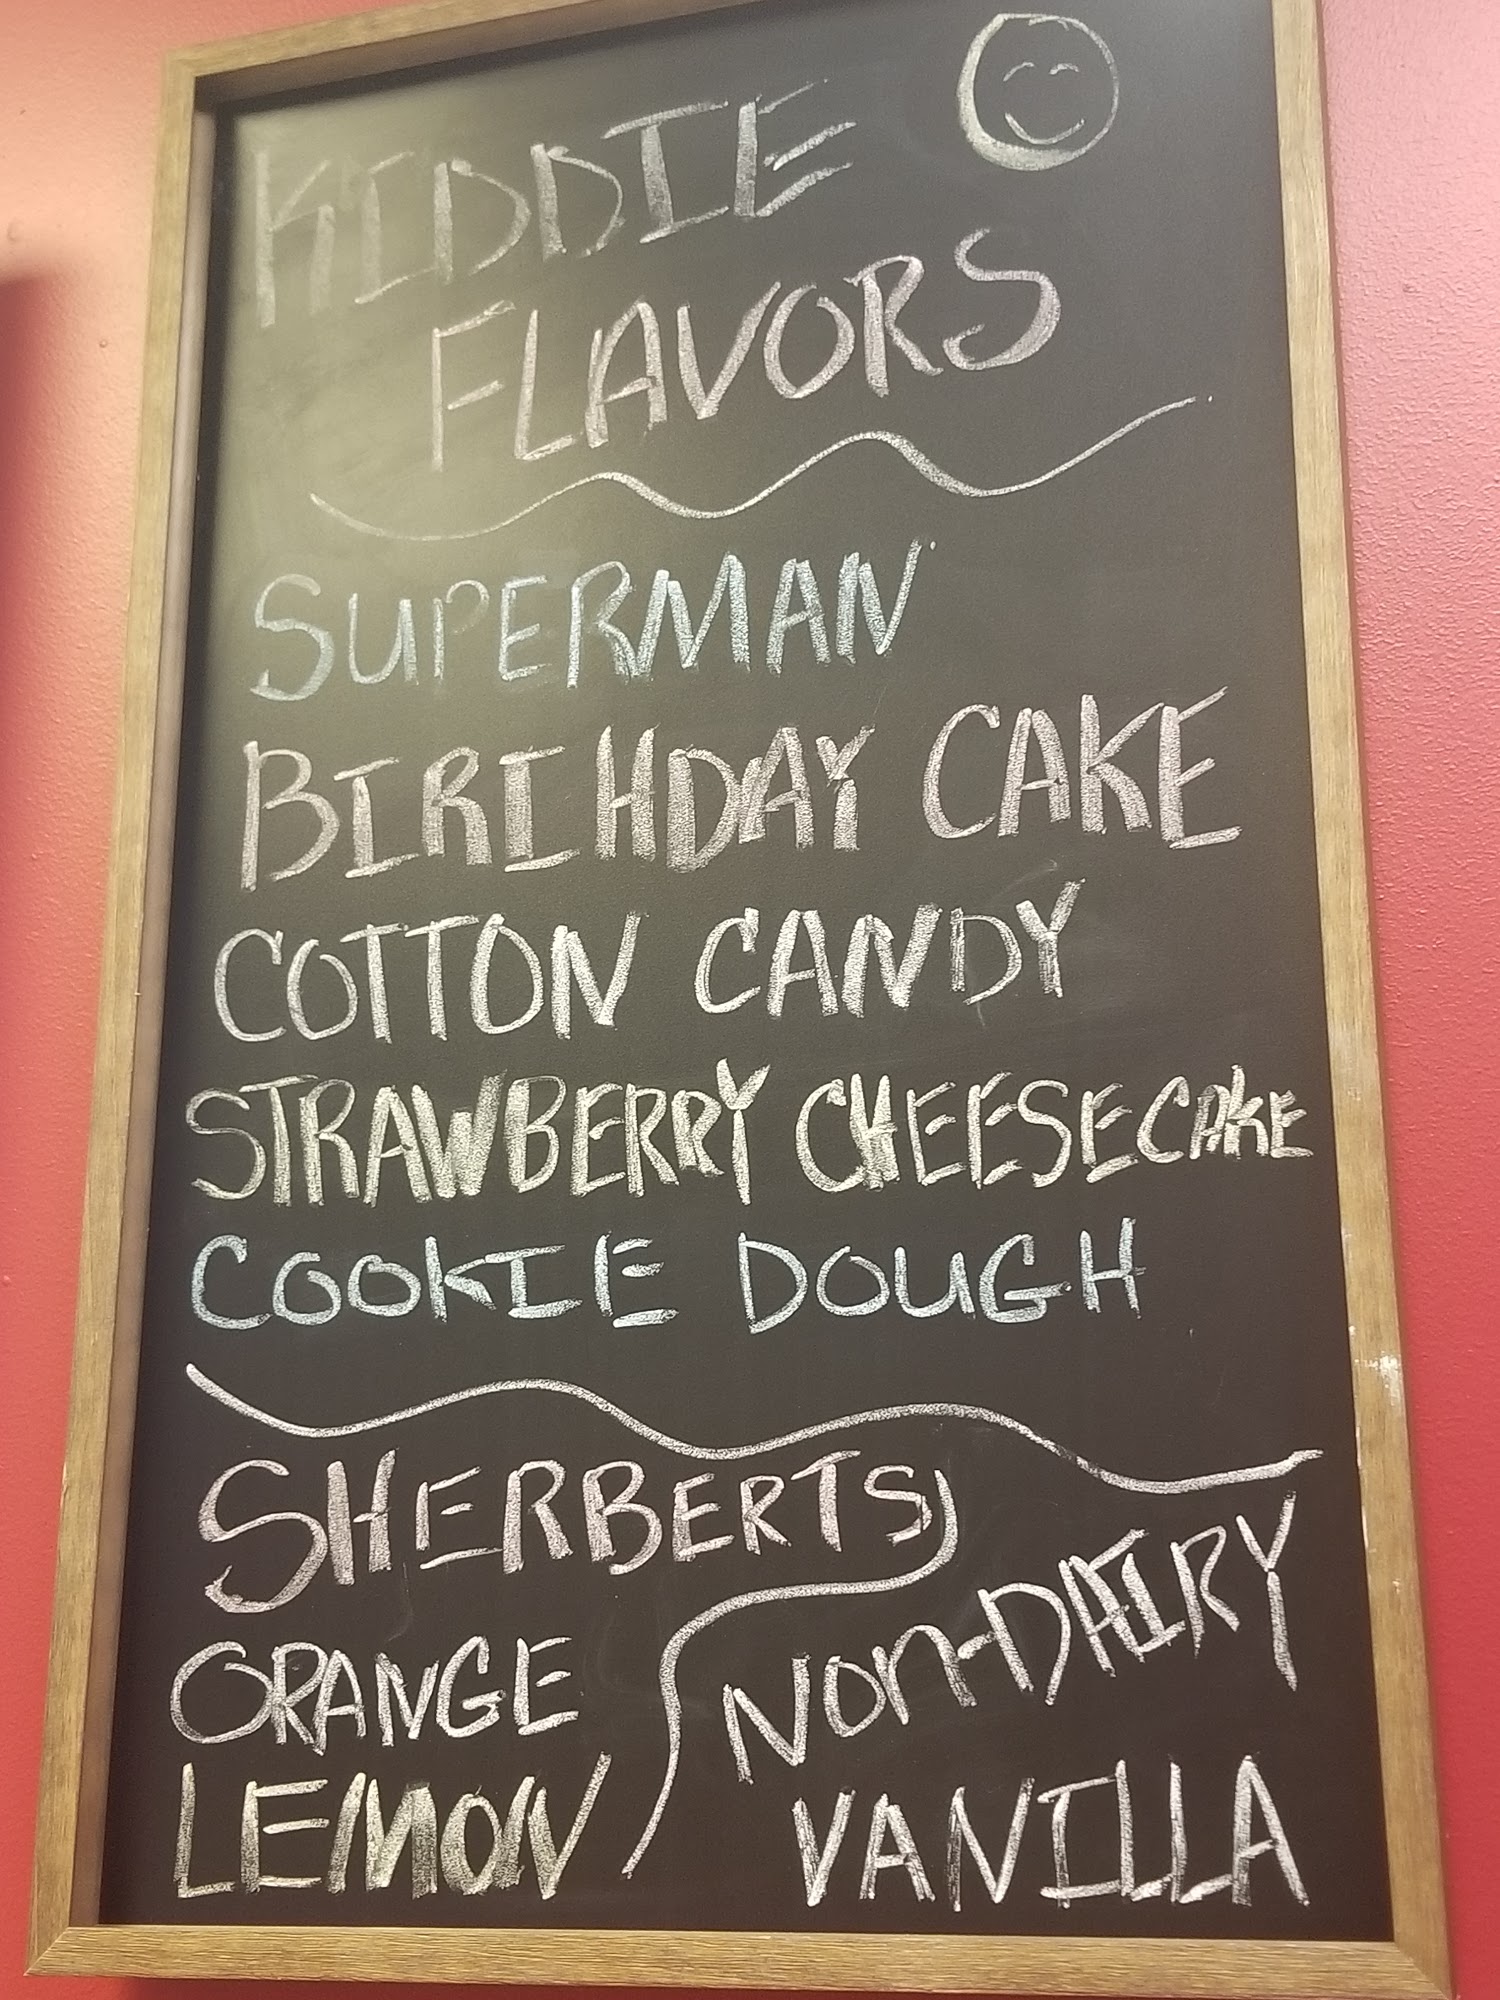 KIDDIE
FLAVORS
SUPERMAN
BIRIHDAY CAKE
COTTON CANDY
STRAWBERRY CHEESECAKE
COOKIE DOUGH
SHERBERTS
ORANGE
LEMON
NON-DAIRY
VANILLA